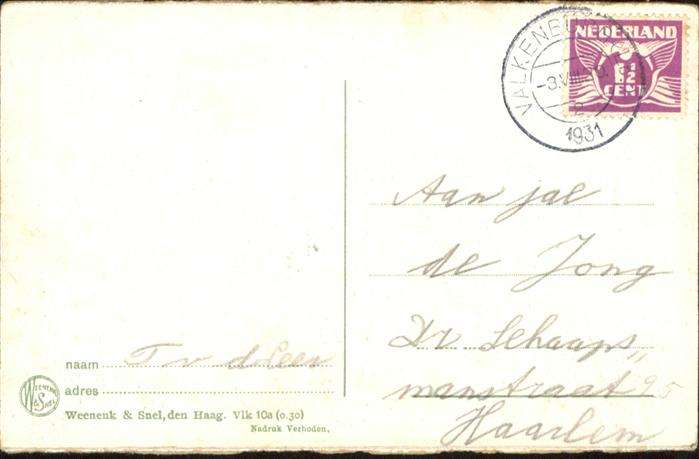 VALKENBURG
-3.VIII
2
1931
NEDERLAND
1½
CENT
Aan
de Jong
Dr Schaaps„
manstraat 95
Haarlem
naam T v d Leer
adres
WEENENK & SNEL
Weenenk & Snel, den Haag. Vlk 10a (0.30)
Nadruk Verboden.